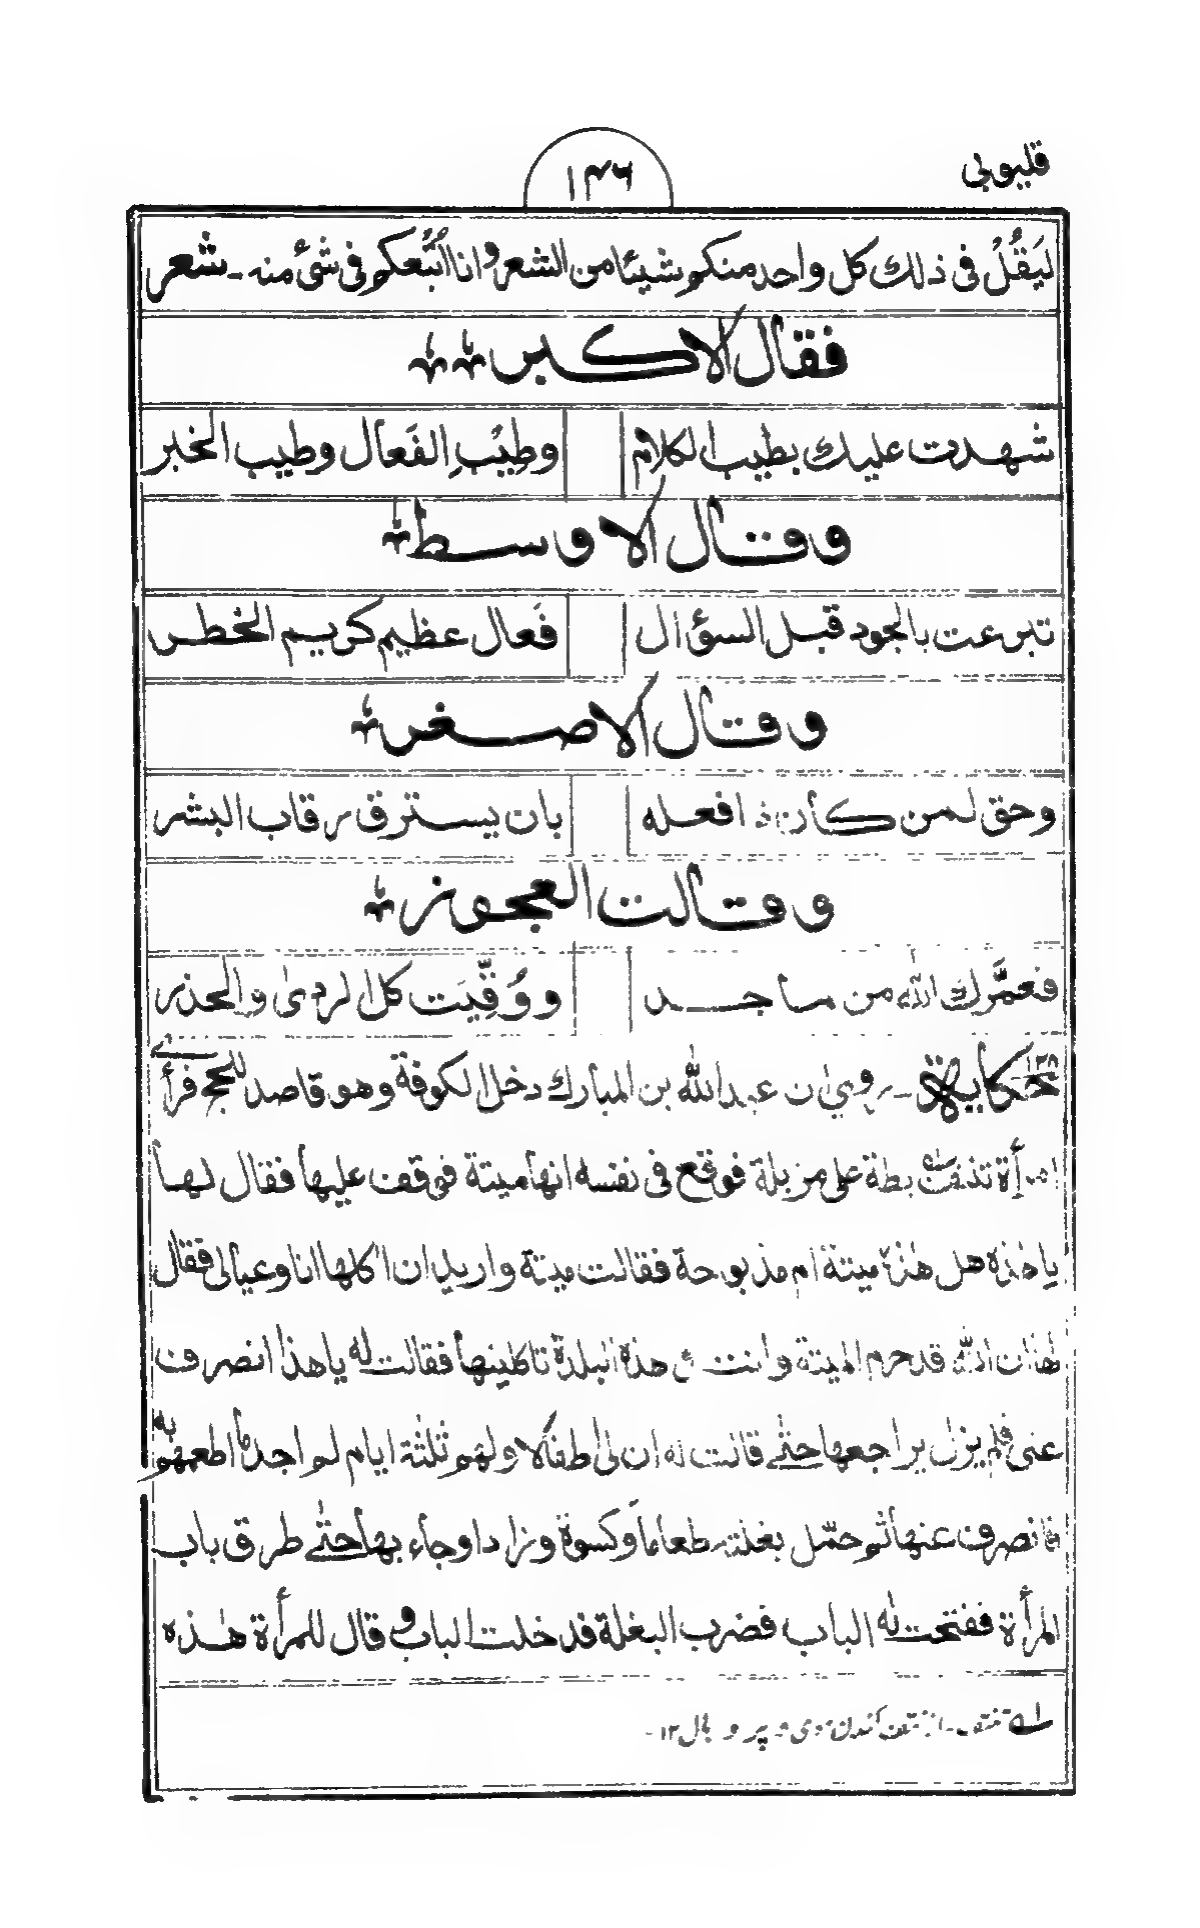 قليوبي
١٤٦
لِيَقُلْ فى ذلك كل واحد منكم شيئا من الشعر وانا اتْبعكم فى شئ منه ـ شعر
فقال الاكبر
شهدت عليك بطيب الكلام وطِيْبِ الفَعال وطيب الخبر
وقال الاوسط
تبرعت بالجود قبل السؤال فَعال عظيم كريم الخطر
وقال الاصغر
وحق لمن كان ذا فعله بان يسترق رقاب البشر
وقالت العجوز
فعمَّرك الله من ماجد ووُقِّيَت كل الردٰى والحذر
١٣٨ حكاية ـ روي ان عبد الله بن المبارك دخل الكوفة وهو قاصد للحج فرأے
امرأة تنتف بطة على مزبلة فوقع فى نفسه انها ميتة فوقف عليها فقال لها
يا هٰذه هل هٰذه ميتة ام مذبوحة فقالت ميتة واريد ان اٰكلها انا وعيالى فقال
لها ان الله قد حرم الميتة وانت فى هذه البلدة تاكلينها فقالت له يا هذا انصرف
عنى فلم يزل يراجعها حتٰے قالت له ان لى اطفالا ولهم ثلٰثة ايام لم اجد ما اطعمهم به
فانصرف عنها ثم حمّل بغلته طعاما وكسوة وزادا وجاء بها حتٰے طرق باب
المرأة ففتحت له الباب فضرب البغلة قد خلت الباب وقال للمرأة هٰذه
لے تنتف ـ از نتف كندن موى و پر و بال ١٢ ـ